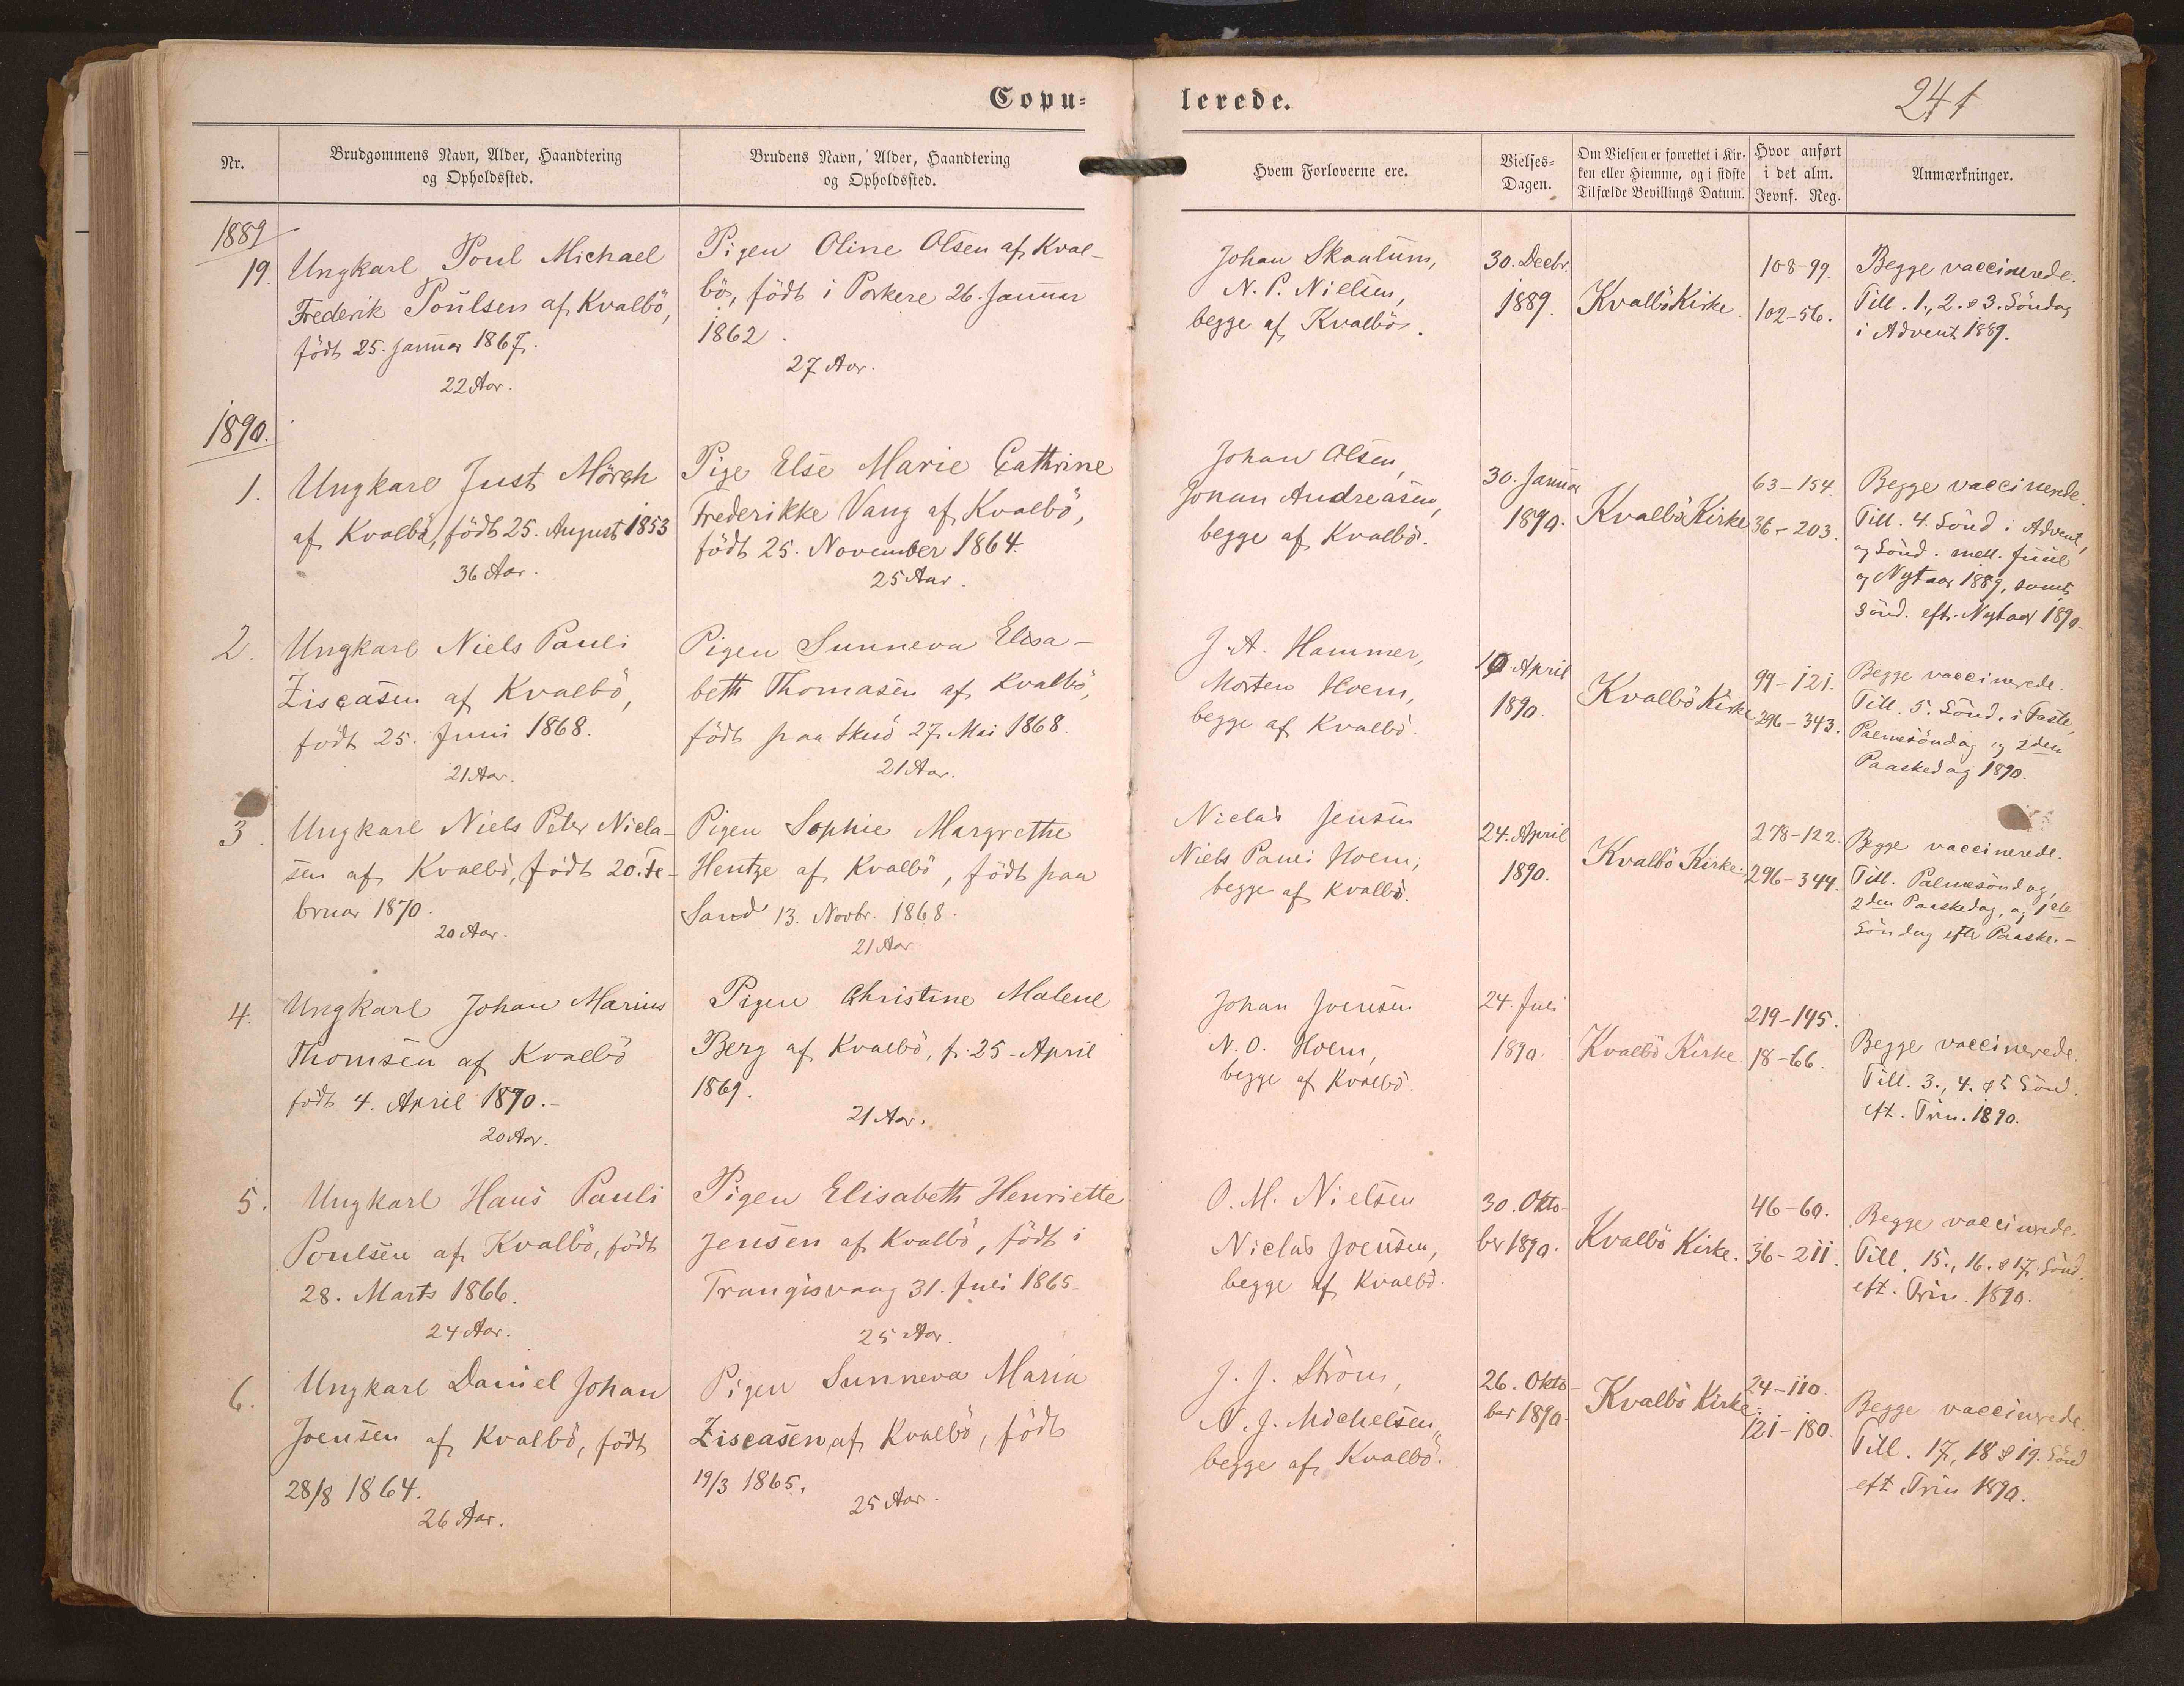 Copu-
lerede.
241
Nr.
Brudgommens Navn, Alder, Haandtering
og Opholdssted.
Brudens Navn, Alder, Haandtering
og Opholdssted.
Hvem Forloverne ere.
Vielses-
Dagen.
Om Vielsen er forrettet i Kir-
ken eller Hiemme, og i sidste
Tilfælde Bevillings Datum.
Hvor anført
i det alm.
Jevnf. Reg.
Anmærkninger.
1889
19.
Ungkarl Poul Michael
Frederik Poulsen af Kvalbö,
födt 25. Januar 1867.
22 Aar.
Pigen Oline Olsen af Kval-
bö, födt i Porkere 26. Januar
1862.
27 Aar.
Johan Skaalum,
N. P. Nielsen,
begge af Kvalbö.
30. Decbr.
1889.
Kvalbö Kirke.
108-99.
102-56.
Begge vaccinerede.
Till. 1., 2. & 3. Söndag
i Advent 1889.
1890.
1.
Ungkarl Just Mörch
af Kvalbö, födt 25. August 1853
36 Aar.
Pige Else Marie Cathrine
Frederikke Vang af Kvalbö,
födt 25. November 1864.
25 Aar.
Johan Olsen,
Jonan Andreasen,
begge af Kvalbö.
30. Januar
1890.
Kvalbö Kirke
63-154.
36-203.
Begge vaccinerede.
Till. 4. Sönd i Advent,
og Sönd. mell. Juul
og Nytaar 1889, samt
Sönd. eft. Nytaar 1890.
2.
Ungkarl Niels Pauli
Ziscasen af Kvalbö,
födt 25. Juni 1868.
21 Aar.
Pigen Sunneva Elisa-
beth Thomasen af Kvalbö,
födt paa Skuö 27. Mai 1868.
21 Aar.
J. A. Hammer,
Morten Hoem,
begge af Kvalbö.
10. April
1890.
Kvalbö Kirke
99-121.
296-343.
Begge vaccinerede.
Till. 5. Sönd. i Faste,
Palmesöndag og 2den
Paaskedag 1890.
3.
Ungkarl Niels Peter Nicla-
sen af Kvalbö, födt 20. Fe-
bruar 1870.
20 Aar.
Pigen Sophie Margrethe
Hentze af Kvalbö, födt paa
Sand 13. Novbr. 1868.
21 Aar
Niclas Jensen
Niels Pauli Hoem,
begge af Kvalbö.
24. April
1890.
Kvalbö Kirke.
278-122.
296-344.
Begge vaccinerede.
Till. Palmesöndag,
2den Paaskedag, og 1ste
Söndag efter Paaske.-
4.
Ungkarl Johan Marius
Thomsen af Kvalbö
födt 4. April 1870.-
20 Aar.
Pigen Christine Malene
Berg af Kvalbö, f. 25. April
1869.
21 Aar.
Johan Joensen
N. O. Hoem,
begge af Kvalbö.
24. Juli
1890.
Kvalbö Kirke.
219-145.
18-66.
Begge vaccinerede.
Till. 3., 4. & 5 Sönd.
eft. Trin. 1890.
5.
Ungkarl Hans Pauli
Poulsen af Kvalbö, födt
28. Marts 1866.
24 Aar.
Pigen Elisabeth Henriette
Jensen af Kvalbö, födt i
Trangisvaag 31. Juli 1865.
25 Aar.
O. M. Nielsen
Niclas Joensen,
begge af Kvalbö.
30. Okto-
ber 1890.
Kvalbö Kirke.
46-60.
36-211.
Begge vaccinerede.
Till. 15., 16. & 17. Sönd.
eft. Trin. 1890.
6.
Ungkarl Daniel Johan
Joensen af Kvalbö, födt
28/8 1864.
26 Aar.
Pigen Sunneva Maria
Ziscasen, af Kvalbö, födt
19/3 1865.
25 Aar.
J. J. Ström,
N. J. Michelsen,
begge af Kvalbö.
26. Okto-
ber 1890.
Kvalbö Kirke.
24-110.
121-180.
Begge vaccinerede.
Till. 17., 18 & 19. Sönd
eft Trin 1890.